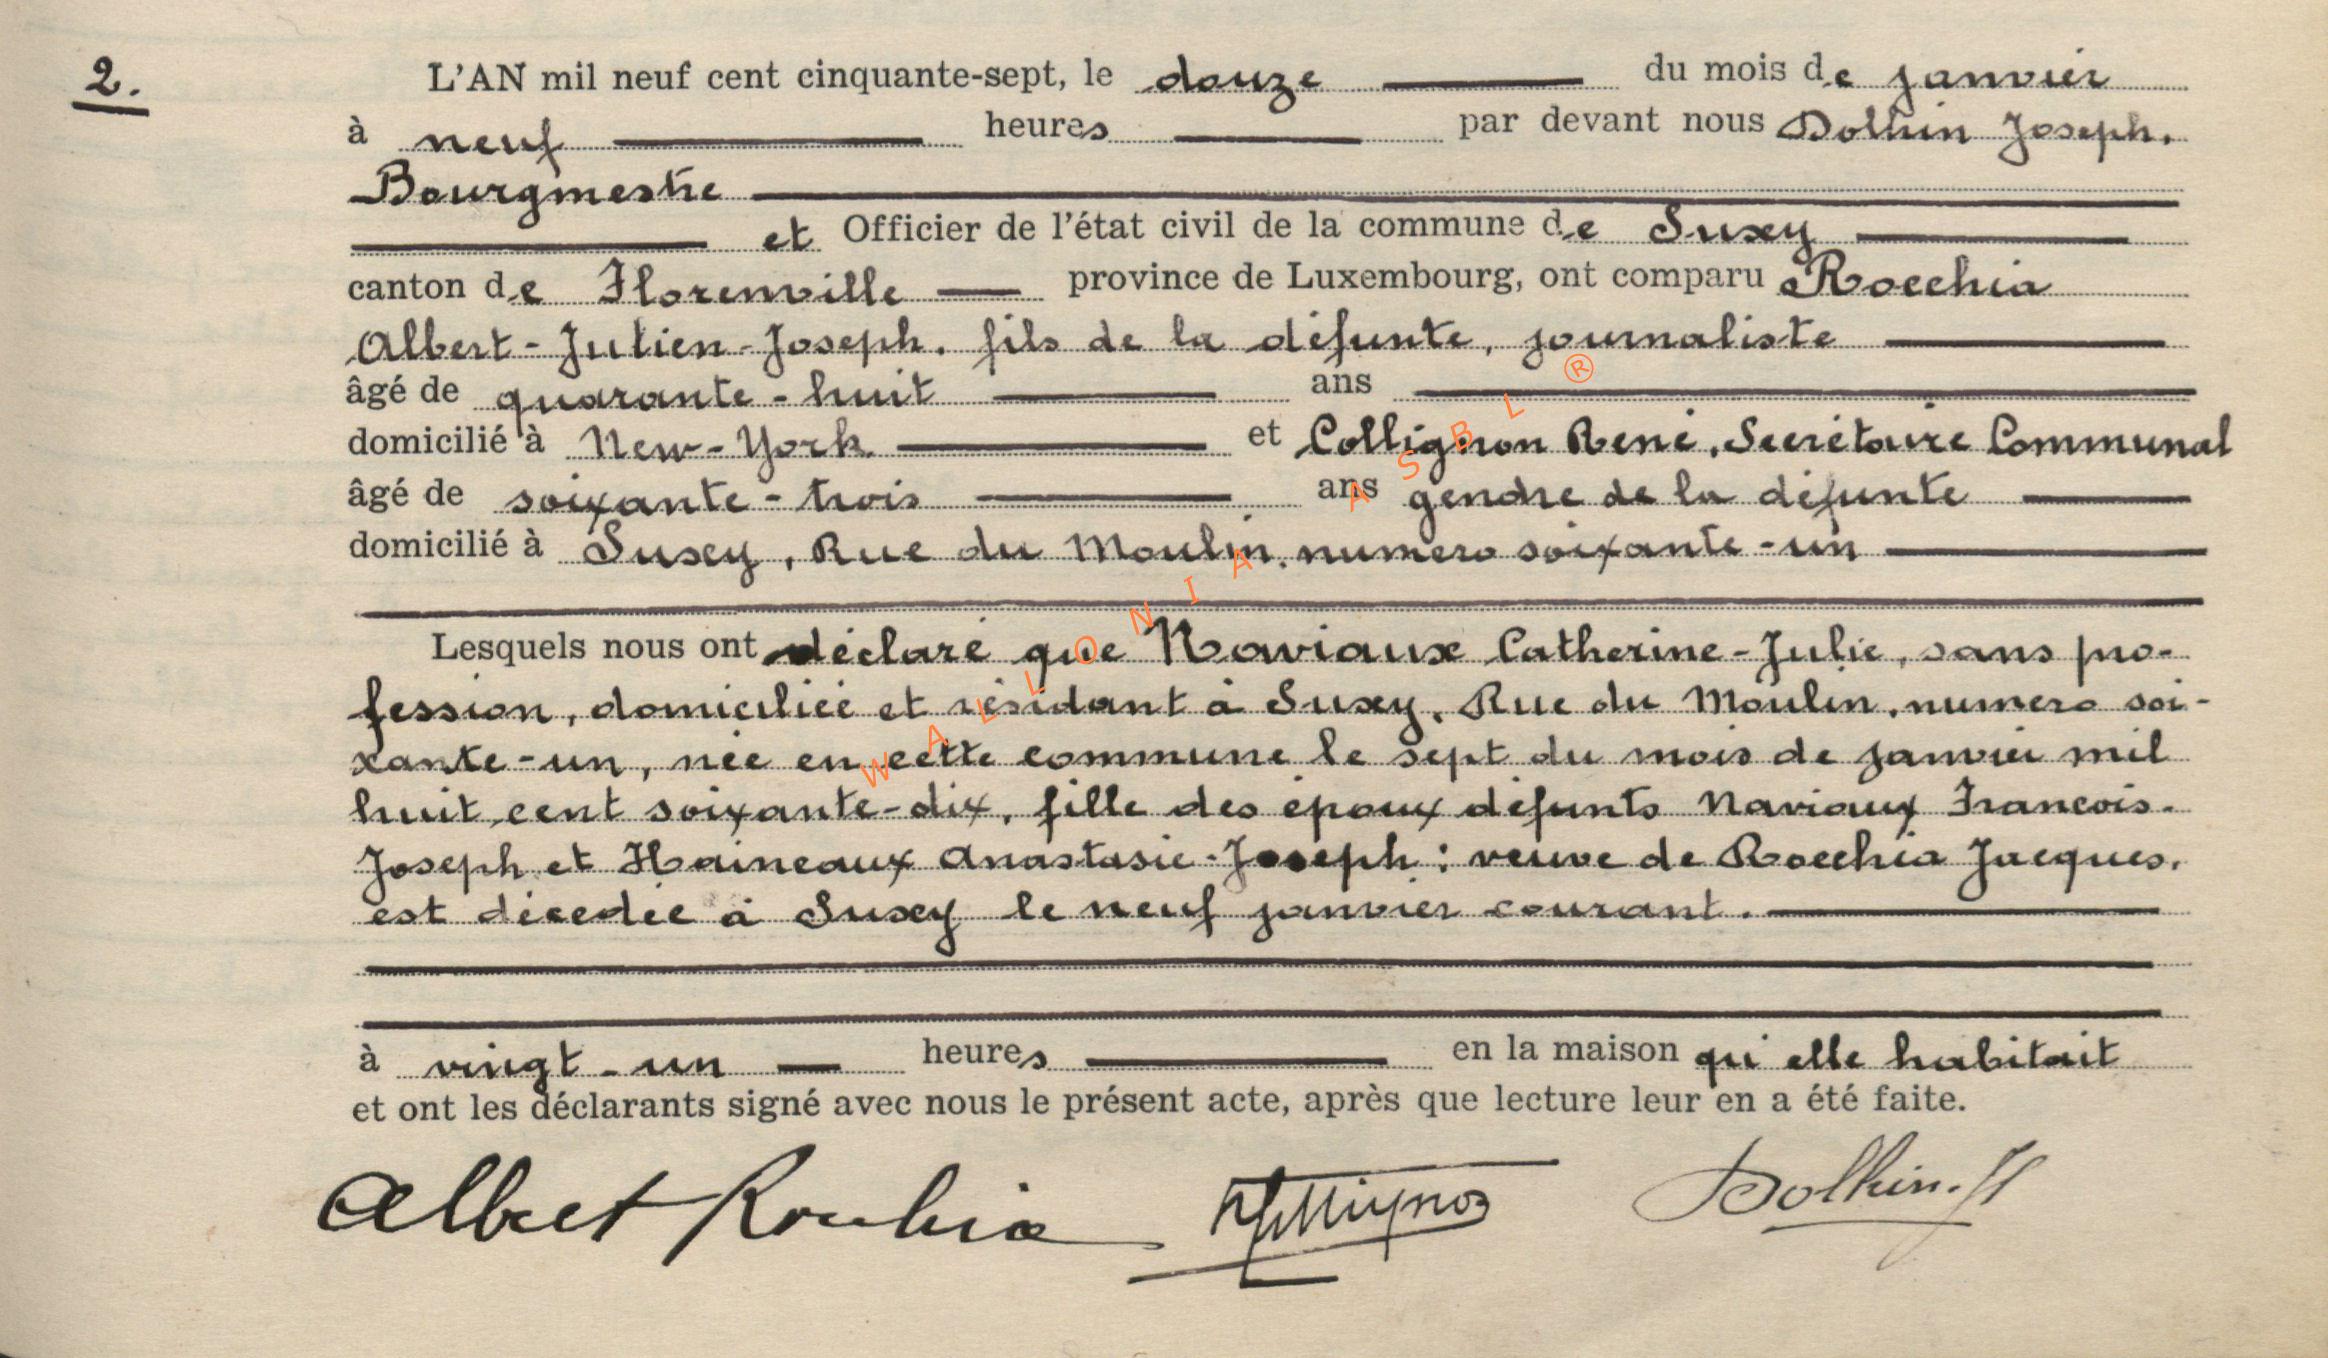 2.
L'AN mil neuf cent cinquante-sept, le douze du mois de janvier
à neuf heures par devant nous Dolhin Joseph.
Bourgmestre
et Officier de l'état civil de la commune de Suxy
canton de Florenville province de Luxembourg, ont comparu Rocchia
Albert-Julien-Joseph. fils de la défunte, journaliste
âgé de quarante-huit ans
domicilié à New-York. et Collignon René, Secrétaire Communal
âgé de soixante-trois ans gendre de la défunte
domicilié à Suxy, Rue du Moulin. numero soixante-un
Lesquels nous ont déclaré que Naviaux Catherine-Julie, sans pro-
fession, domiciliée et résidant à Suxy, Rue du Moulin, numero soi-
xante-un, née en cette commune le sept du mois de janvier mil
huit cent soixante-dix, fille des époux défunts Naviaux Francois-
Joseph et Haineaux Anastasie-Joseph: veuve de Rocchia Jacques.
est décédée à Suxy le neuf janvier courant.
à vingt-un heures en la maison qu'elle habitait
et ont les déclarants signé avec nous le présent acte, après que lecture leur en a été faite.
Albert Rocchia RCollignon Dolhin. J
WALLONIA ASBL ®